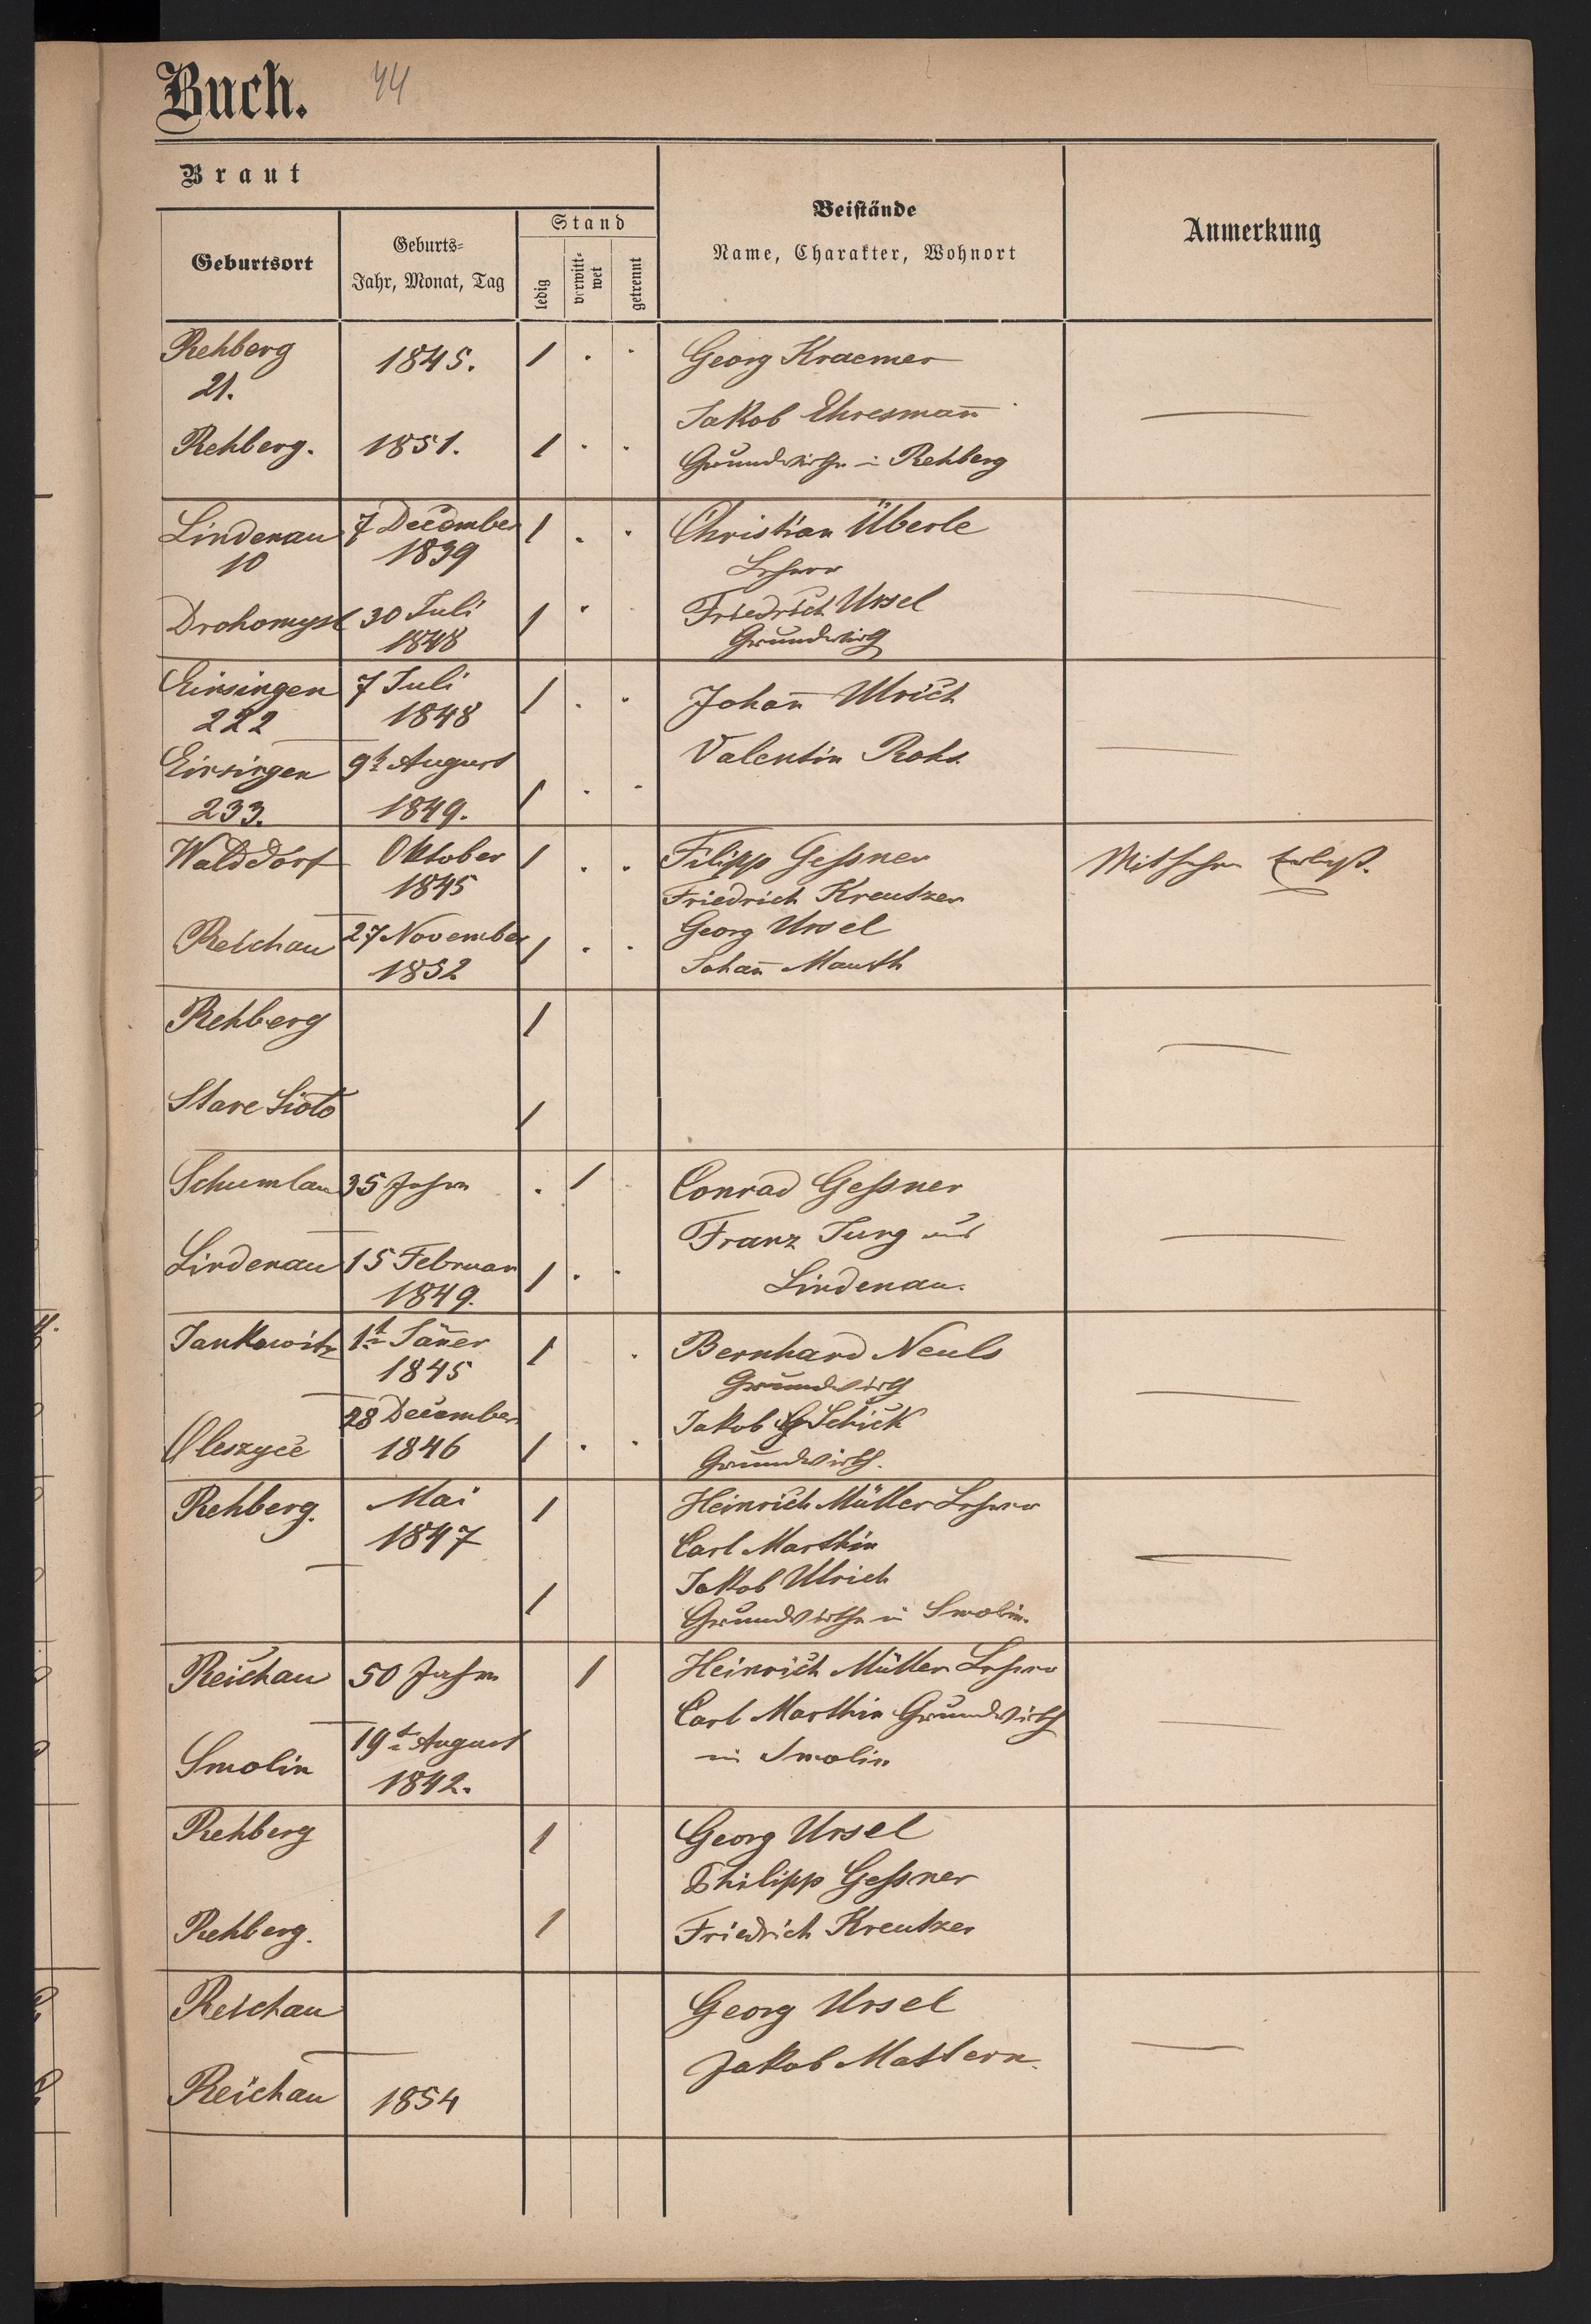 Buch. 44
Braut
Geburtsort
Geburts-
Jahr, Monat, Tag
Stand
ledig
verwitt-
wet
getrennt
Beistände
Name, Charakter, Wohnort
Anmerkung
Rehberg 1845. 1 Georg Kraemer
21.
Jakob Ehresmañ
Rehberg. 1851. 1
Grundwirthe in Rehberg
Lindenau 7 December 1 Christian Überle
10 1839 Lehrer
Drohomysl 30 Juli 1 Friedrich Ursel
1848 Grundwirth
Einsingen 7 Juli 1 Johañ Ulrich
222 1848
Einsingen 9t August Valentin Rohs
233. 1849. 1
Walddorf Oktober 1 Filipp Geßner
1845 Friedrich Kreutzer
Reichau 27 November 1 Georg Ursel
1852 Johañ Mauth
Rehberg 1
Stare Sioło 1
Schumlau 35 Jahre 1 Conrad Geßner
Franz Jung aus
Lindenau 15 Februar 1 Lindenau.
1849.
Jankowitz 1t Jäñer 1 Bernhard Neuls
1845 Grundwirth
28 December Jakob Schick
Oleszyce 1846 1 Grundwirth.
Rehberg. Mai 1 Heinrich Müller Lehrer
1847 Carl Marthin
Jakob Ulrich
1 Grundwirthe in Smolin.
Reichau 50 Jahre 1 Heinrich Müller Lehrer
Carl Marthin Grundwirth
19t August in Smolin
Smolin 1842.
Rehberg 1 Georg Ursel
Philipp Geßner
Rehberg. 1 Friedrich Kreutzer
Reichau Georg Ursel
Jakob Mattern.
Reichau 1854